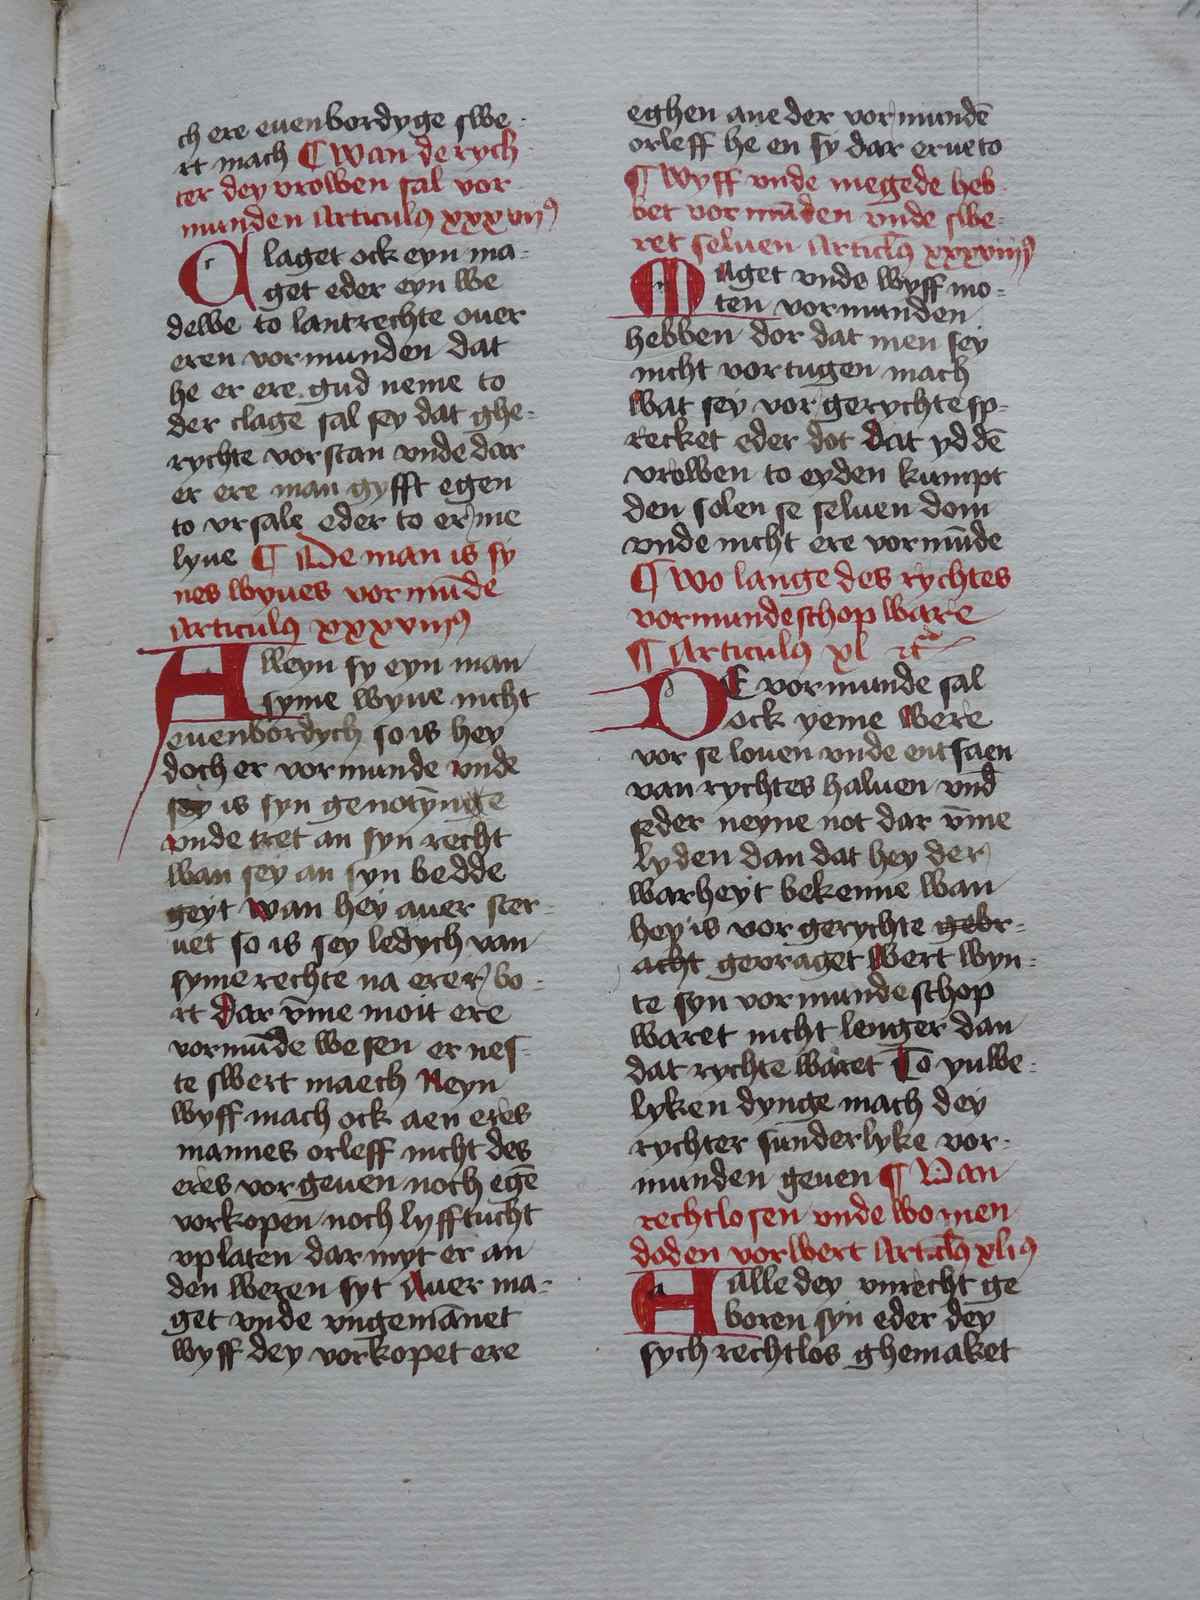 ch ere euenbordyge swe-
rt mach ¶ Wan de rych
ter dey vrowen sal vor
munden Articulꝰ xxxviiꝰ
Claget ock eyn ma-
get eder eyn we
dewe to lantrechte ouer
eren vormunden dat
he er ere gud neme to
der clage sal sey dat ghe-
rychte vorstan vnde dar
er ere man gyfft egen
to vrsale eder to erme
lyue ¶ De man is sy
nes wyues vormūde
Articulꝰ xxxviiiꝰ
Alleyn sy eyn man
syme wyue nicht
euenbordych so is hey
doch er vormunde vnde
sey is syn genotȳnge
vnde tret an syn recht
wan sey an syn bedde
geyt wan hey auer ster-
uet so is sey ledych van
syme rechte na erer bo-
rt Dar v̄me moit ere
vormūde wesen er nes-
te swert maech Neyn
wyff mach ock aen eres
mannes orleff nicht des
eres vorgeuen noch egē
vorkopen noch lyfftucht
vplaten dar myt er an
den weren syt Auer ma-
get vnde vngemānet
wyff dey vorkopet ere
eghen ane der vormundē
orleff he en sy dar erue to
¶ Wyff vnde megede heb-
bet vormūden vnde swe-
ret seluen Articlꝰ xxxviiiiꝰ
Maget vnde wyff mo-
ten vormunden
hebben dor dat men sey
nicht vortugen mach
Wat sey vor gerychte sp-
recket eder dot Dat yd dē
vrowen to eyden kumpt
den solen se seluen don
vnde nicht ere vormūde
¶ Wo lange des rychtes
vormundeschop ware
¶ Articulꝰ xl
De vormunde sal
ock yeme were
vor se louen vnde entfaen
van rychtes haluen vnd
eder neyne not dar v̄me
lyden dan dat hey der
warheyt bekenne wan
hey is vor gerychte gebr-
acht gevraget Wert wyn-
te syn vormundeschop
waret nicht lenger dan
dat rychte waret To ynwe-
lyken dynge mach dey
rychter sunderlyke vor-
munden geuen ¶ Van
rechtlosen vnde wo men
doden vorwert Articlꝰ xliꝰ
Alle dey vnrecht ge
boren syn eder dey
sych rechtlos ghemaket